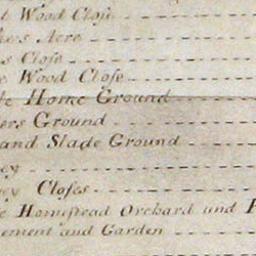 Wood Close
Acre
Close
Wood Close
Home Ground
Ground
and Slade Ground
Closes
Homestead Orchard and
and Garden